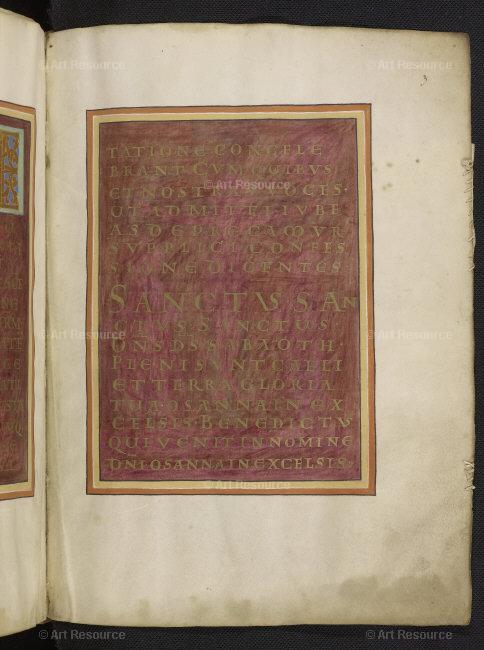 TATIONE CONCELE
BRANT CUM QUIBUS
ET NOSTRAS VOCES·
UT ADMITTI IUBE
AS DEPRECAMUR
SUPPLICI CONFES
SIONE DICENTES
SANCTUS SAN
TUS SANCTUS
DNS DS SABAOTH·
PLENI SUNT CAELI
ET TERRA GLORIA
TUA· OSANNA IN EX
CELSIS· BENEDICTU
QUI VENIT IN NOMINE
DNI OSANNA IN EXCELSIS·
3
© Art Resource
© Art Resource
© Art Resource
© Art Resource
© Art Resource
© Art Resource
© Art Resource
© Art Resource